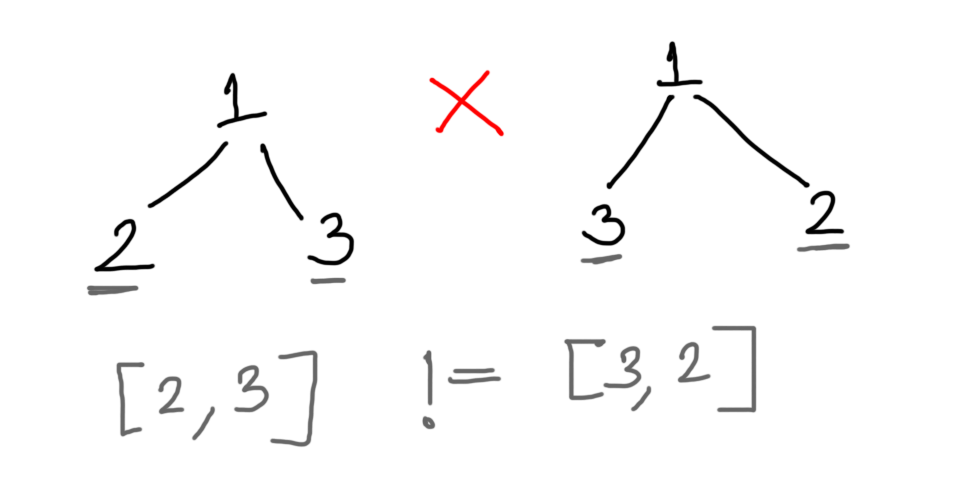 1 1
2 3 3 2
[2,3] != [3,2]